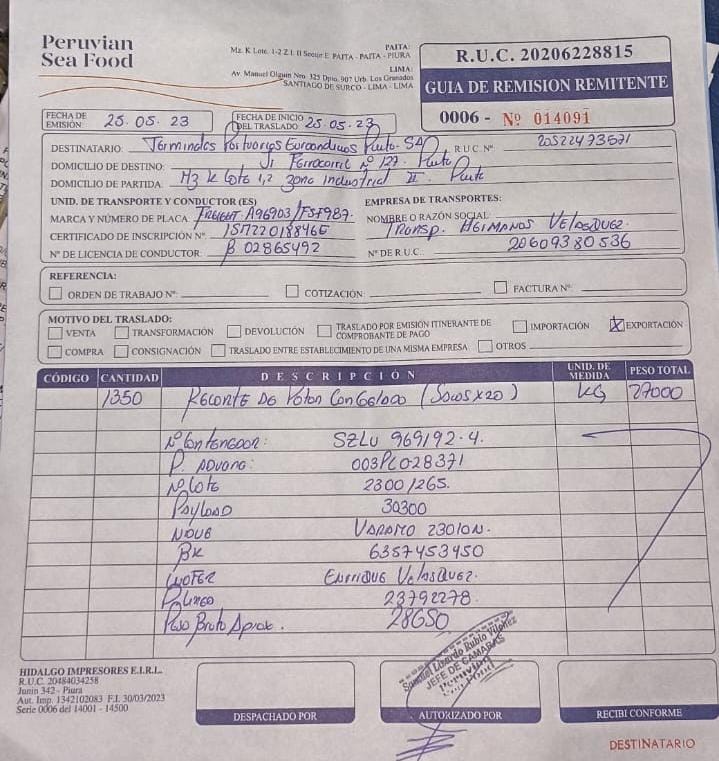 Peruvian
Sea Food
PAITA:
Mz. K Lote. 1-2 Z.I. II Sector E PAITA - PAITA - PIURA
LIMA:
Av. Manuel Olguin Nro. 325 Dpto. 907 Urb. Los Granados
SANTIAGO DE SURCO - LIMA - LIMA
R.U.C. 20206228815
GUIA DE REMISION REMITENTE
0006 - Nº 014091
FECHA DE EMISIÓN 25.05.23
FECHA DE INICIO DEL TRASLADO 25.05.23
DESTINATARIO: Terminales Portuarios Euroandinos Paita-SA R.U.C. Nº 20522473571
DOMICILIO DE DESTINO: Jr Ferrocarril Nº 127. Paita
DOMICILIO DE PARTIDA: Mz K Lote 1,2 Zona Industrial II. Paita
UNID. DE TRANSPORTE Y CONDUCTOR (ES)
EMPRESA DE TRANSPORTES:
MARCA Y NÚMERO DE PLACA: Freight A96903/
NOMBRE O RAZÓN SOCIAL: Transp. Hermanos Velasquez.
CERTIFICADO DE INSCRIPCIÓN Nº
Nº DE LICENCIA DE CONDUCTOR: B 02865492
Nº DE R.U.C. 20609380536
REFERENCIA:
ORDEN DE TRABAJO Nº:
COTIZACIÓN:
FACTURA Nº:
MOTIVO DEL TRASLADO:
VENTA TRANSFORMACIÓN DEVOLUCIÓN TRASLADO POR EMISIÓN ITINERANTE DE COMPROBANTE DE PAGO IMPORTACIÓN X EXPORTACIÓN
COMPRA CONSIGNACIÓN TRASLADO ENTRE ESTABLECIMIENTO DE UNA MISMA EMPRESA OTROS
CÓDIGO CANTIDAD DESCRIPCIÓN UNID. DE MEDIDA PESO TOTAL
1350 Recorte De Poton Congelado (Sacos x 20) KG 27000
Nº Contenedor: SZLU 969192-4.
P. Aduana: 003PL028371
Nº Lote 23001265.
Payload 30300
Nave Varamo 2310N.
BK 6357453450
Chofer Enrique Velasquez.
P. Linea 23792278.
Peso Bruto Aprox. 28650
Samuel Lizardo Rubio Vilchez
JEFE DE CAMARAS
Peruvian
Sea Food
HIDALGO IMPRESORES E.I.R.L.
R.U.C. 20484034258
Junin 342 - Piura
Aut. Imp. 1342102083 F.I. 30/03/2023
Serie 0006 del 14001 - 14500
DESPACHADO POR
AUTORIZADO POR
RECIBI CONFORME
DESTINATARIO